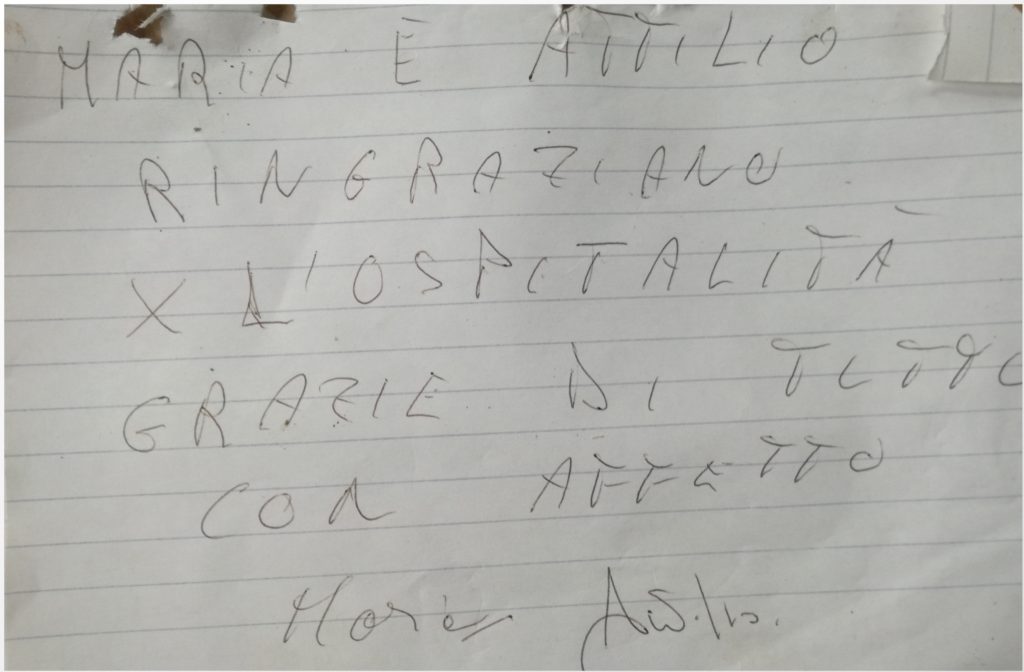 MARIA E ATTILIO
RINGRAZIANO
X L'OSPITALITÀ
GRAZIE DI TUTTO
CON AFFETTO
Maria Attilio.